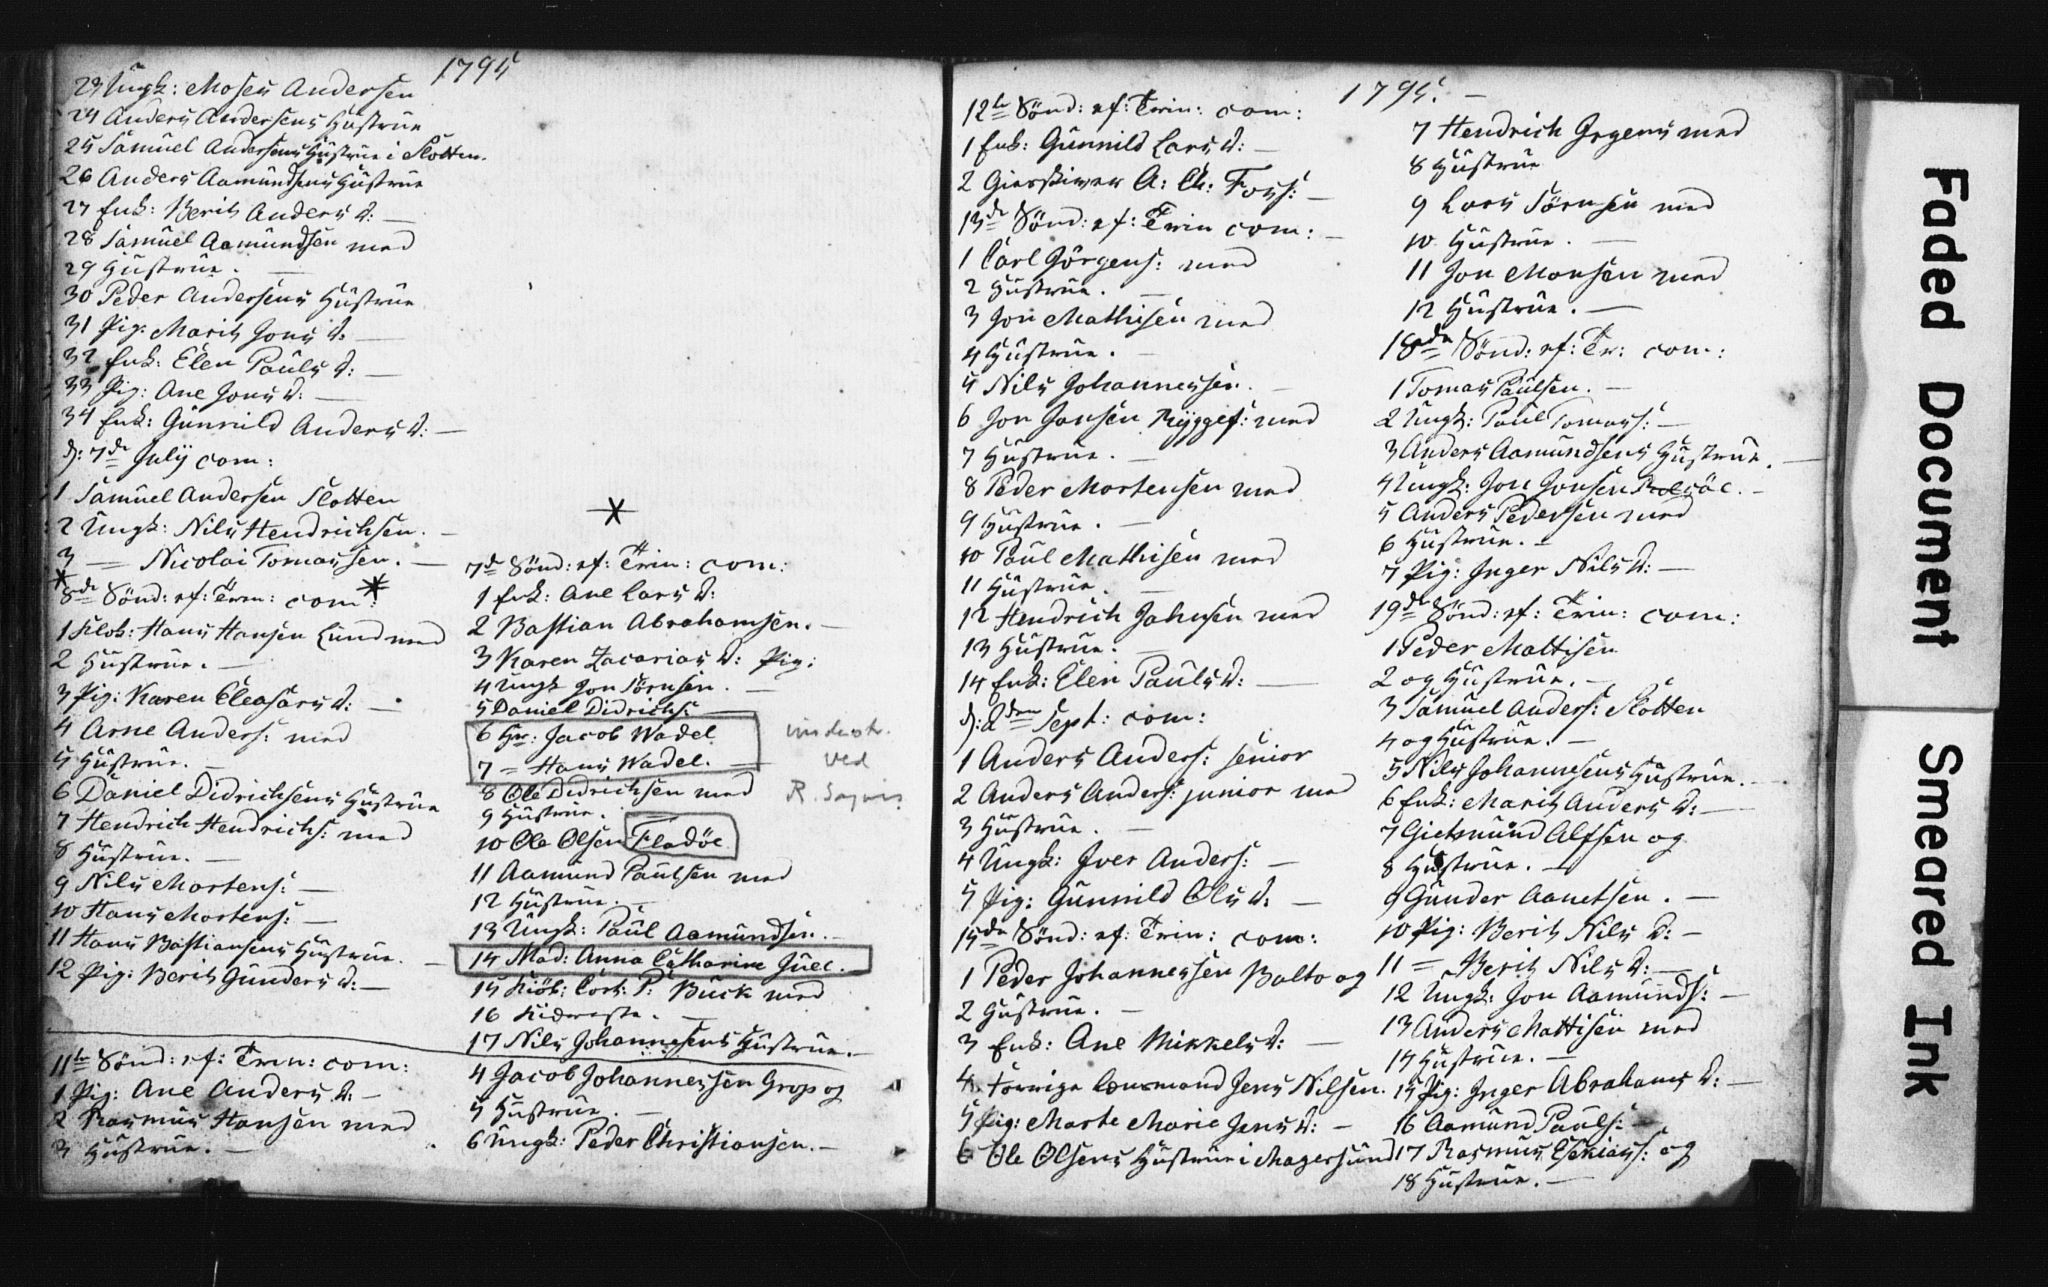 1795
23 Ungk: Moses Andersen
24 Anders Andersens Hüstrüe
25 Samüel Andersens Hüstrüe i Slotten.
26 Anders Aamündsens Hüstrüe
27 Enk: Berith Anders D: —
28 Samüel Aamündsen med
29 Hüstrüe. —
30 Peder Andersens Hüstrüe
31 Pig: Marith Jons D: —
32 Enk: Elen Paüls D: —
33 Pig: Ane Jons D: —
34 Enk: Günnild Anders D: —
D: 7de Jülÿ com:
1 Samüel Andersen Slotten
2 Üngk: Nils Hendrichsen. —
3 — Nicolai Tomassen. —
8de Sönd: ef: Trin: com:
1 Klok: Hans Hansen Lünd med
2 Hüstrüe. —
3 Pig: Karen Eleasars D: —
4 Arne Anders: med
5 Hüstrüe. —
6 Daniel Didrichsens Hüstrüe
7 Hendrich Hendrichs: med
8 Hüstrüe. —
9 Nils Mortens: —
10 Hans Mortens: —
11 Hans Bastiansens Hüstrüe. —
12 Pig: Berith Günders D: —
11te Sönd: ef: Trin: com:
1 Pig: Ane Anders D: —
2 Rasmus Hansen med
3 Hüstrüe. —
7de Sönd: ef: Trin: com:
1 Enk: Ane Lars D:
2 Bastian Abrahamsen. —
3 Karen Zacarias D: Pig:
4 Üngk Jon Sörnsen. —
5 Daniel Didrichs: —
6 Hr: Jacob Wadel
7 — Hans Wadel. —
8 Ole Didrichsen med
9 Hüstrüe. —
10 Ole Olsen Fladöe.
11 Aamünd Paülsen med
12 Hüstrüe. —
13 Üngk: Paül Aamündsen. —
14 Mad: Anna Catharine Jüel.
15 Kiöb: Cort: P: Bück med
16 Kiereste. —
17 Nils Johannesens Hüstrüe. —
4 Jacob Johannessen Grop og
5 Hüstrüe. —
6 Üngk: Peder Christiansen. —
ved
1795. —
12te Sönd: ef: Trin: com:
1 Enk: Günnild Lars D: —
2 Giæstiver A: Ch: Fors: —
13de Sönd: ef: Trin com: —
1 Carl Jörgens: med
2 Hüstrüe. —
3 Jon Mathisen med
4 Hüstrüe. —
5 Nils Johannessen. —
6 Jon Jonsen Rÿgges: med
7 Hüstrüe. —
8 Peder Mortensen med
9 Hüstrüe. —
10 Paül Mathisen med
11 Hüstrüe. —
12 Hendrich Johnsen med
13 Hüstrüe. —
14 Enk: Elen Paüls D: —
D: 2den Sept: com:
1 Anders Anders: senior
2 Anders Anders: junior med
3 Hüstrüe. —
4 Üngk: Iver Anders: —
5 Pig: Günnild Ols D: —
15de Sönd: ef: Trin: com:
1 Peder Johannessen Balto og
2 Hüstrüe. —
3 Enk: Ane Mikkels D: —
4 Forrige Lensmand Jens Nilsen.
5 Pig: Marte Marie Jens D: —
6 Ole Olsens Hüstrüe i Magersünd
7 Hendrich Jrgens med
8 Hüstrüe
9 Lars Sörnsen med
10 Hüstrüe. —
11 Jon Monsen med
12 Hüstrüe. —
18de Sönd: ef: Tr: com:
1 Tomas Paülsen. —
2 Üngk: Paül Tomass: —
3 Anders Aamündsens Hüstrüe. —
4 Üngk: Jon Jonsen Rolsöe. —
5 Anders Pedersen med
6 Hüstrüe. —
7 Pig: Inger Nils D: —
19de Sönd: ef: Trin: com:
1 Peder Mattisen
2 og Hüstrüe. —
3 Samüel Anders: Slotten
4 og Hüstrüe. —
5 Nils Johannesens Hüstrüe. —
6 Enk: Marith Anders D: —
7 Giertmünd Alfsen og
8 Hüstrüe. —
9 Günder Aanetsen. —
10 Pig: Berith Nils D: —
11 — Berith Nils D: —
12 Üngk: Jon Aamünds: —
13 Anders Mattisen med
14 Hüstrüe. —
15 Pig: Inger Abrahams D: —
16 Aamünd Paüls: —
17 Rasmus Esekias: og
18 Hüstrüe. —
Faded Document
Smeared Ink